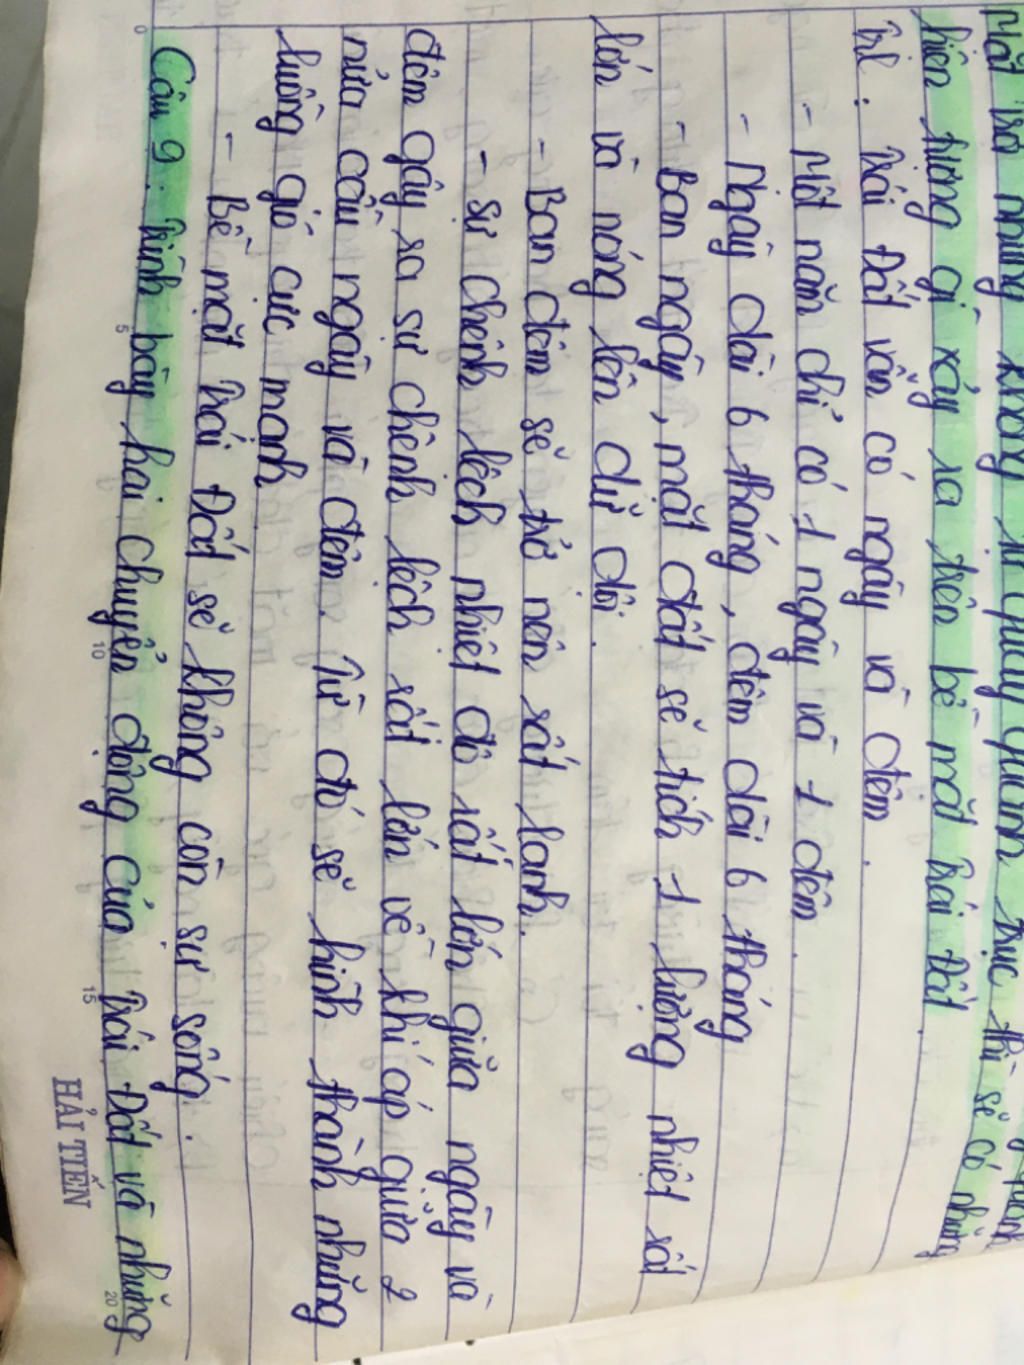 Mặt trời nhưng không tự quay quanh trục thì sẽ có những
hiện tượng gì xảy ra trên bề mặt Trái Đất.
TL: Trái Đất vẫn có ngày và đêm.
- Một năm chỉ có 1 ngày và 1 đêm.
- Ngày dài 6 tháng, đêm dài 6 tháng
- Ban ngày, mặt đất sẽ tích 1 lượng nhiệt rất
lớn và nóng lên dữ dội.
- Ban đêm sẽ trở nên rất lạnh.
- Sự chênh lệch nhiệt độ rất lớn giữa ngày và
đêm gây ra sự chênh lệch rất lớn về khí áp giữa 2
nửa cầu ngày và đêm. Từ đó sẽ hình thành những
luồng gió cực mạnh
- Bề mặt Trái Đất sẽ không còn sự sống.
Câu 9: Trình bày hai chuyển động của Trái Đất và những
0 5 10 15 20
HẢI TIẾN